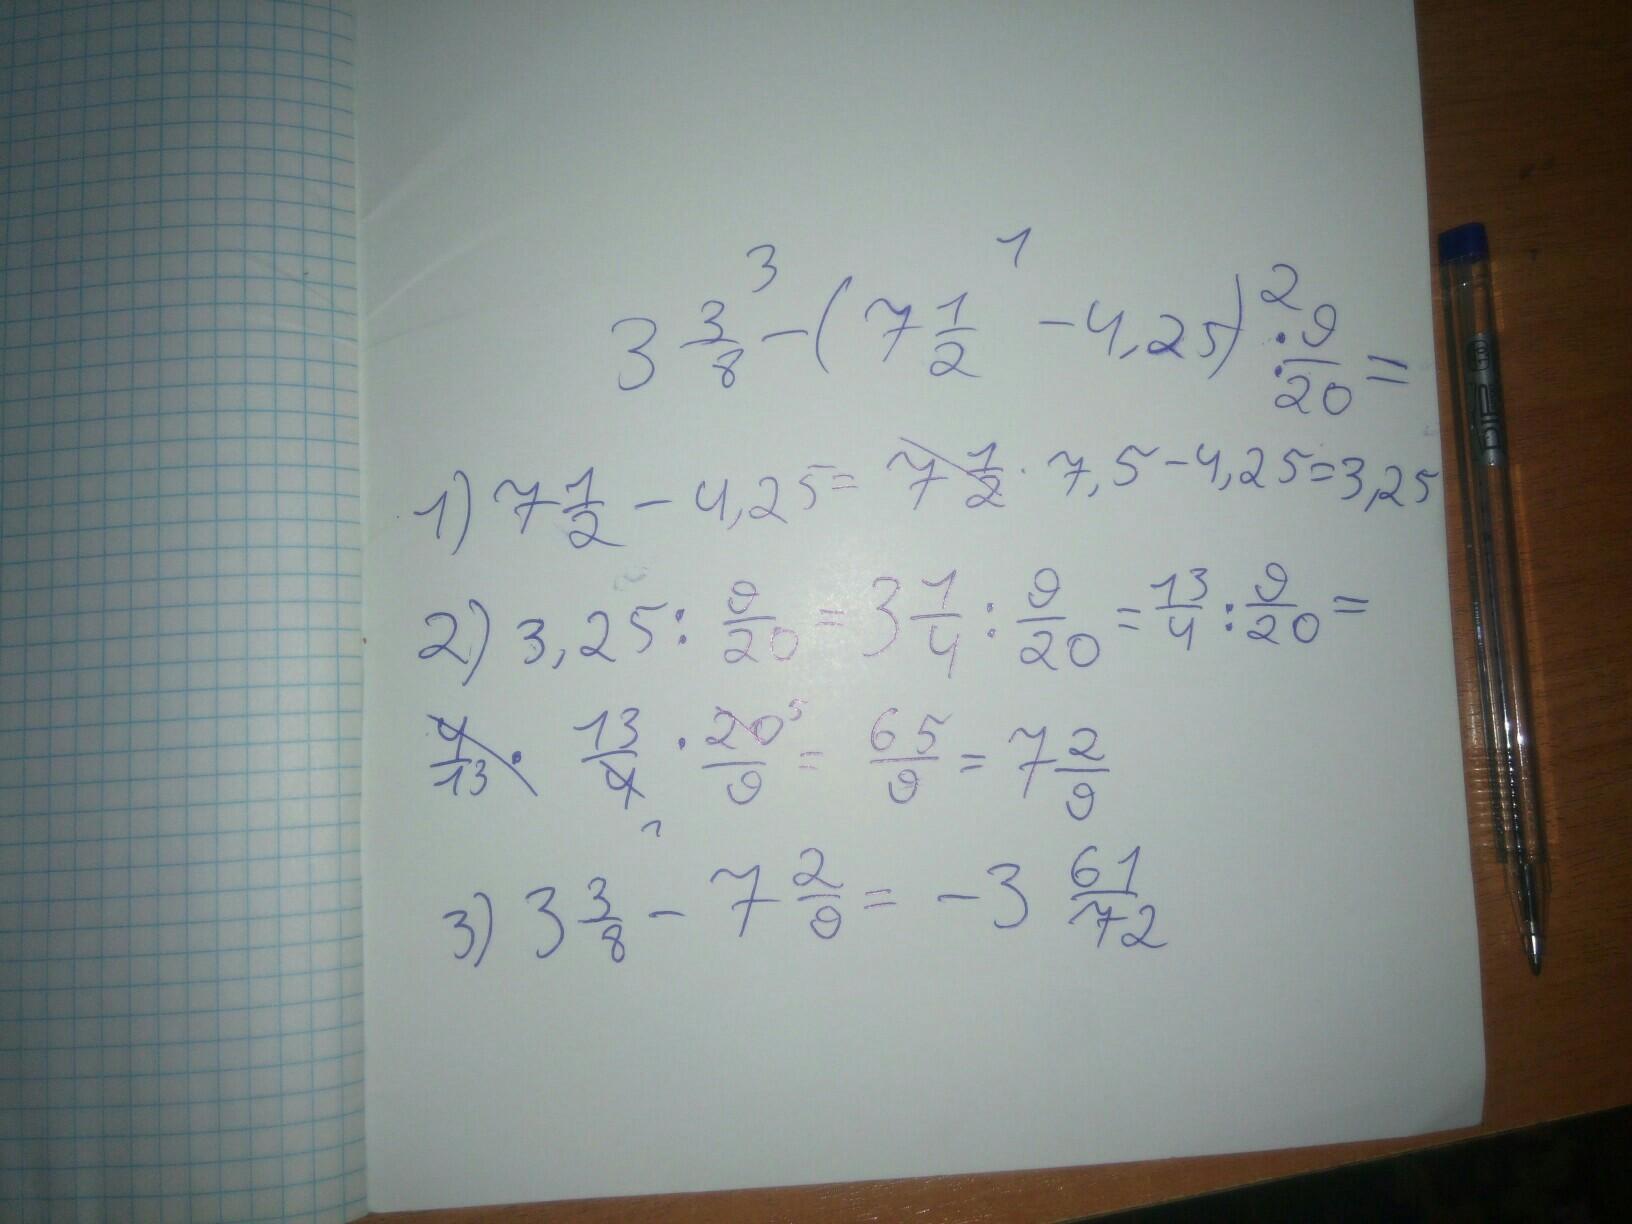 3 3/8 - (7 1/2 - 4,25) : 9/20 =
3 1 2
1) 7 1/2 - 4,25 = 7 1/2 · 7,5 - 4,25 = 3,25
2) 3,25 : 9/20 = 3 1/4 : 9/20 = 13/4 : 9/20 =
4/13 · 13/4 · 20/9 = 65/9 = 7 2/9
1 5
3) 3 3/8 - 7 2/9 = -3 61/72